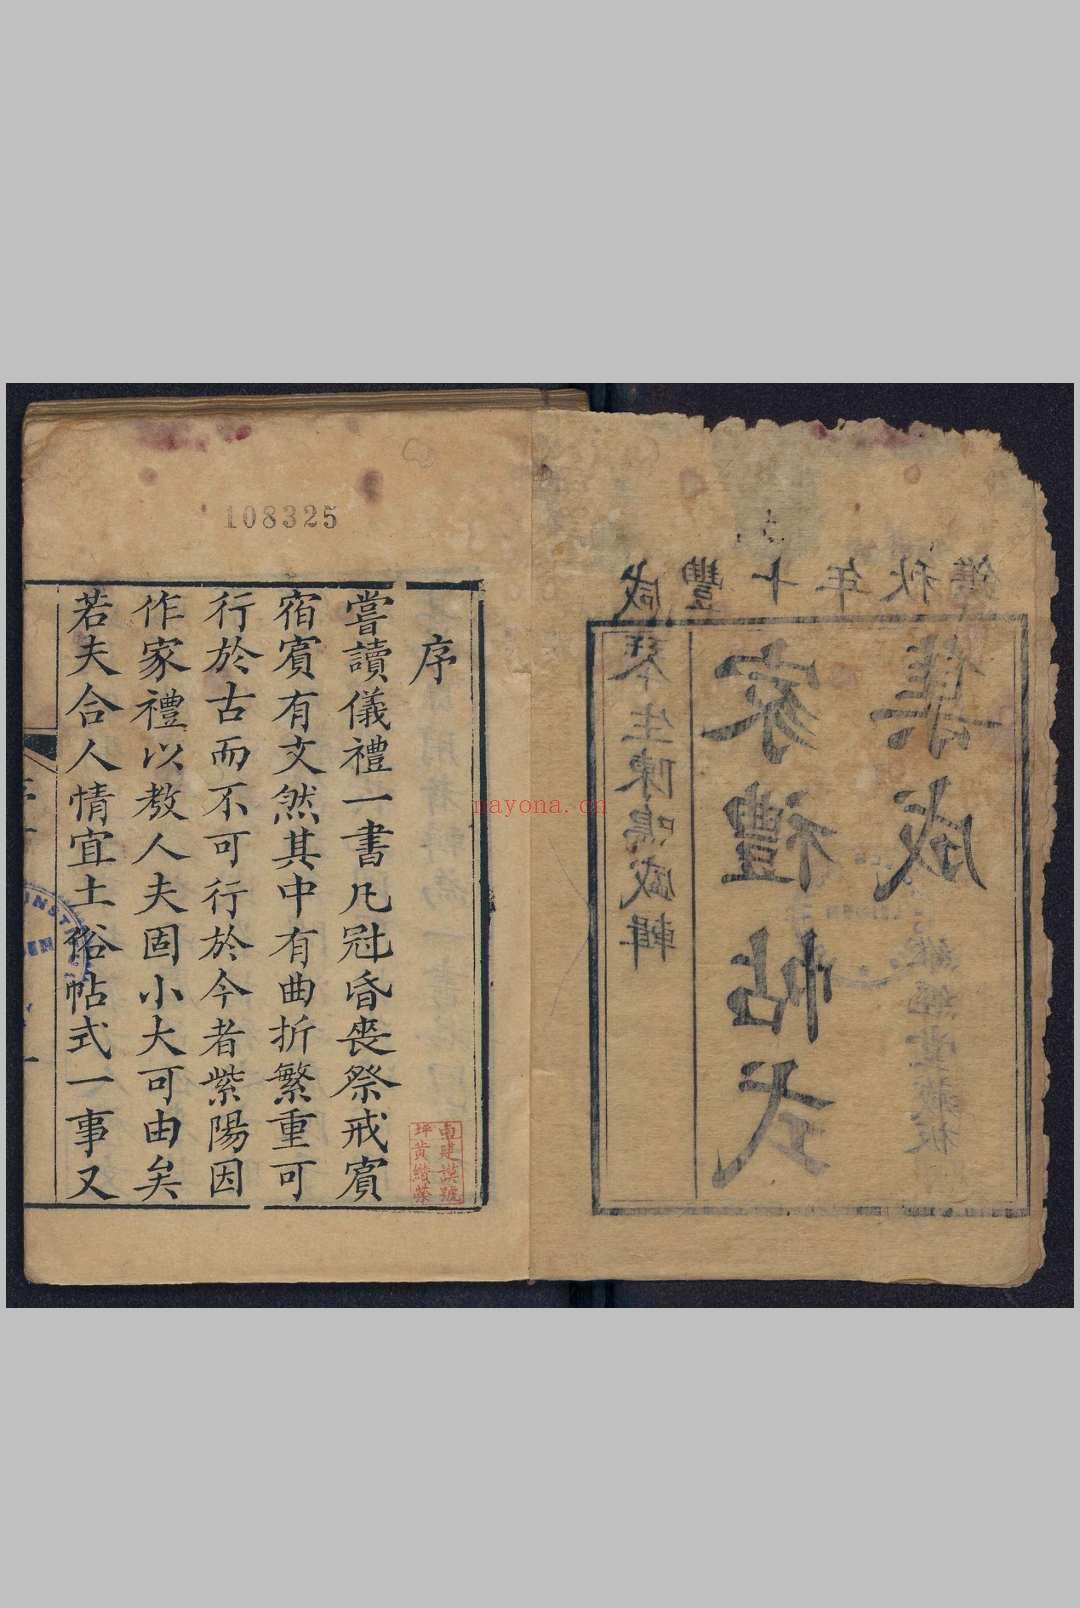 咸豐十年秋鐫
琴生陳鳴盛輯
家禮帖式
集成
108325
序
嘗讀儀禮一書凡冠昏喪祭戒賓
宿賓有文然其中有曲折繁重可
行於古而不可行於今者紫陽因
作家禮以教人夫固小大可由矣
若夫合人情宜土俗帖式一事又
nayona.cn